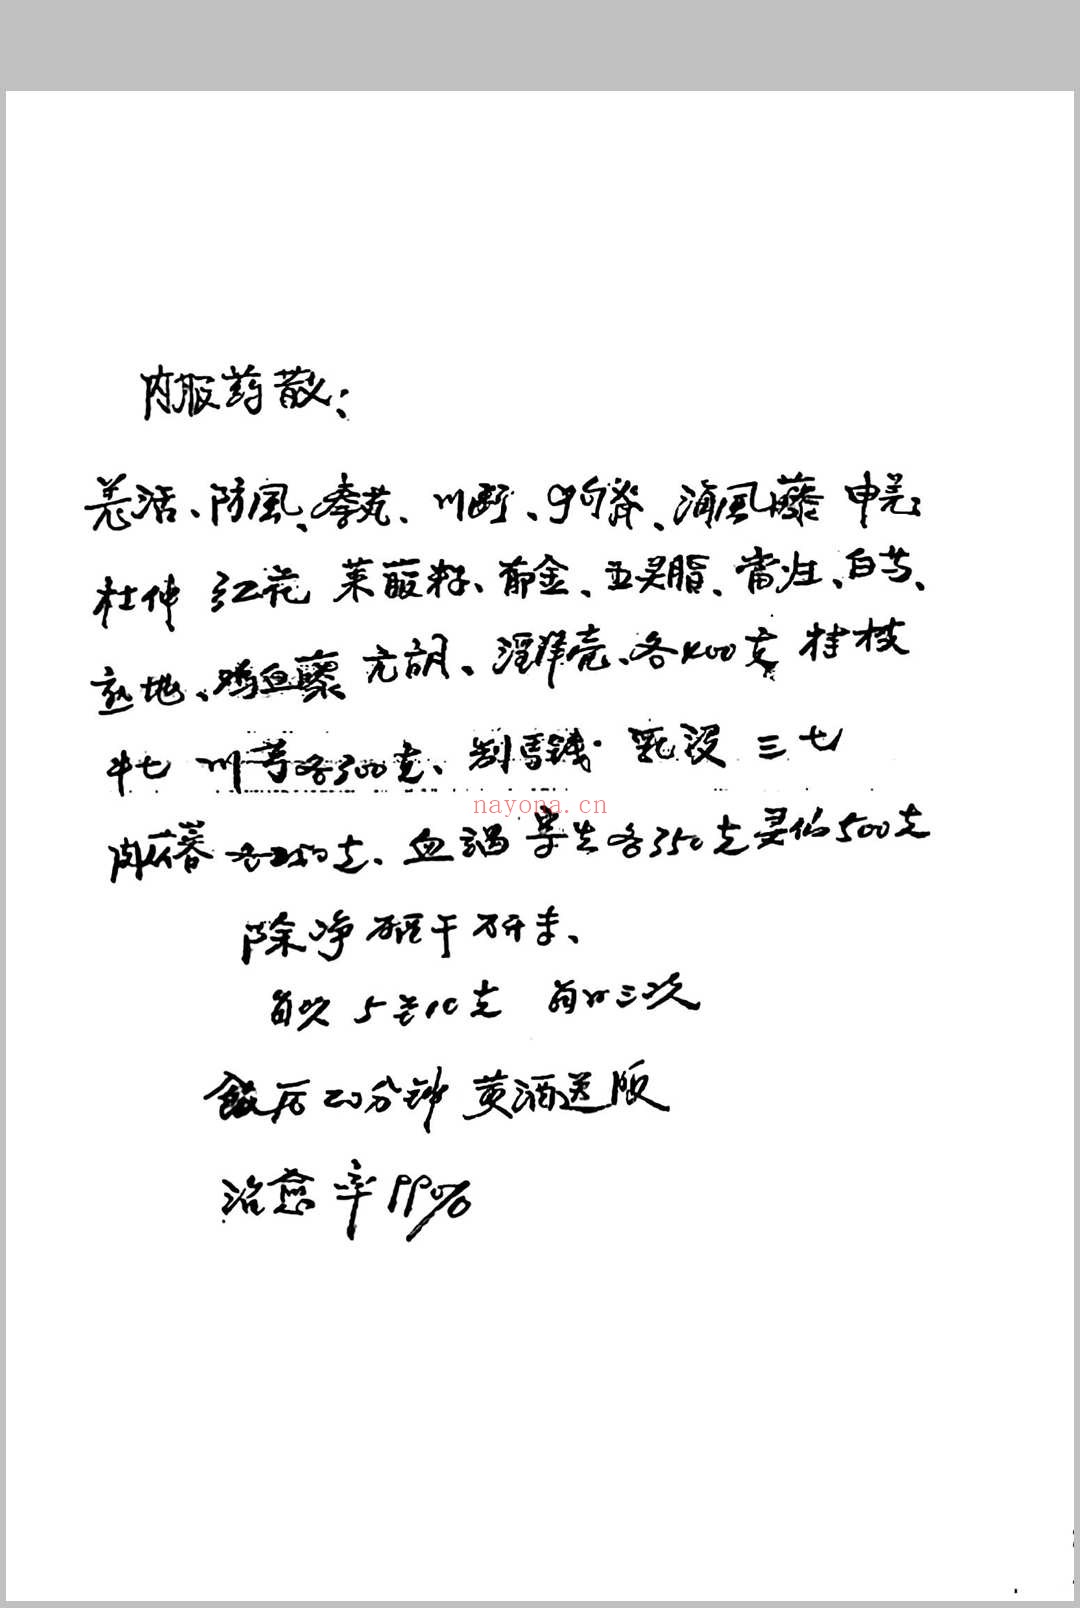 内服药散：
羌活、防風、秦艽、川断、狗脊、海風藤 申羌
杜仲 红花 莱菔籽、郁金、五灵脂、當归、白芍、
熟地、鸡血藤 元胡、淫羊壳、各400克 桂枝
牛七 川芎各300克、制馬錢 乳没 三七
nayona.cn
肉苁蓉 各250克、血竭 寄生各350克 灵仙500克
除净 砸干 研末、
每次 5至10克 每日三次
飯后20分钟 黄酒送服
治愈率99%